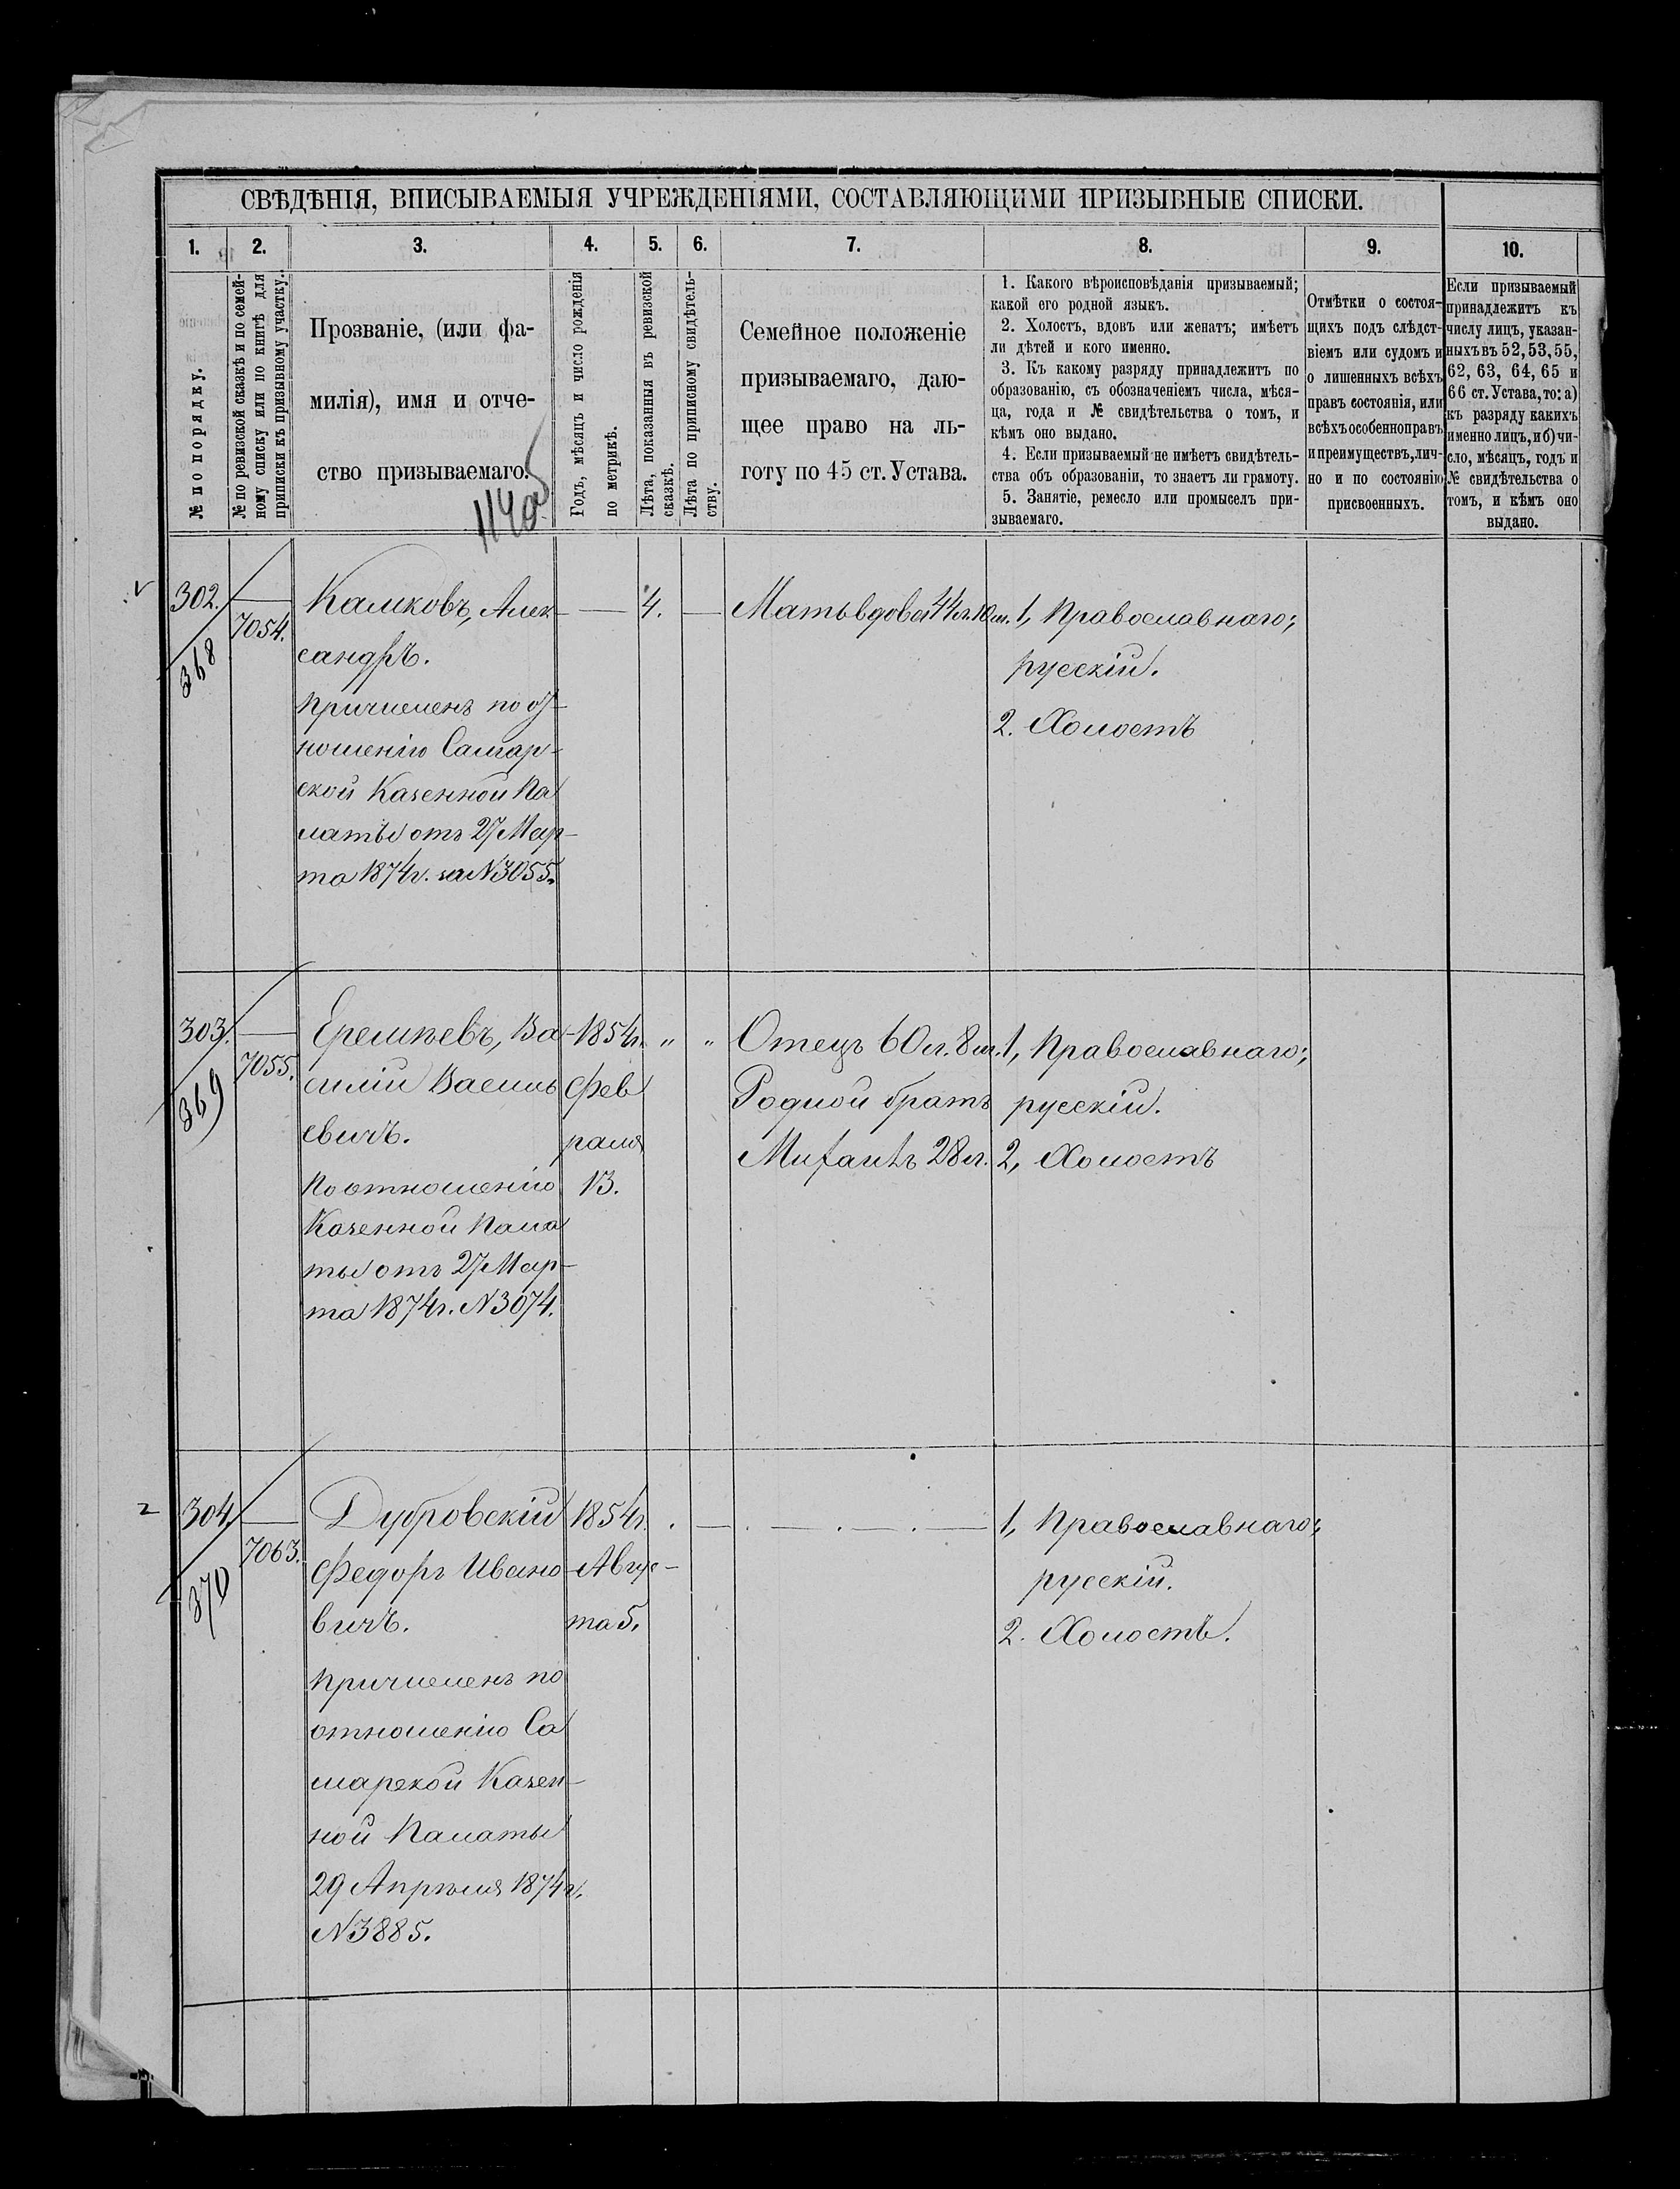 СВѢДѢНІЯ, ВПИСЫВАЕМЫЯ УЧРЕЖДЕНІЯМИ, СОСТАВЛЯЮЩИМИ ПРИЗЫВНЫЕ СПИСКИ.
1.
2.
3.
4.
5.
6.
7.
8.
9.
10.
№ по порядку.
№ по ревизской сказкѣ и по семей-
ному списку или по книгѣ для
приписки къ призывному участку.
Прозваніе, (или фа-
милія), имя и отче-
ство призываемаго.
Годъ, мѣсяцъ и число рожденія
по метрикѣ.
Лѣта, показанныя въ ревизской
сказкѣ.
Лѣта по приписному свидѣтель-
ству.
Семейное положеніе
призываемаго, даю-
щее право на ль-
готу по 45 ст. Устава.
1. Какого вѣроисповѣданія призываемый;
какой его родной языкъ.
2. Холостъ, вдовъ или женатъ; имѣетъ
ли дѣтей и кого именно.
3. Къ какому разряду принадлежитъ по
образованію, съ обозначеніемъ числа, мѣся-
ца, года и № свидѣтельства о томъ, и
кѣмъ оно выдано.
4. Если призываемый не имѣетъ свидѣтель-
ства объ образованіи, то знаетъ ли грамоту.
5. Занятіе, ремесло или промыселъ при-
зываемаго.
Отмѣтки о состоя-
щихъ подъ слѣдст-
віемъ или судомъ и
о лишенныхъ всѣхъ
правъ состоянія, или
всѣхъ особенно правъ
и преимуществъ, лич-
но и по состоянію
присвоенныхъ.
Если призываемый
принадлежитъ къ
числу лицъ, указан-
ныхъ въ 52, 53, 55,
62, 63, 64, 65 и
66 ст. Устава, то: а)
къ разряду какихъ
именно лицъ, и б) чи-
сло, мѣсяцъ, годъ и
№ свидѣтельства о
томъ, и кѣмъ оно
выдано.
302.
368
7054.
Камковъ, Алек-
сандръ.
Причисленъ по от-
ношенію Самар-
ской Казенной Па
латы отъ 27 Мар-
та 1874 г. за N 3055.
4.
Мать вдова 44 л. 10 м.
1, Православнаго;
русскій.
2. Холостъ
303.
369
7055.
Еремѣевъ, Ва-
силій Василь
евичъ.
По отношенію
Казенной Пала
ты отъ 27 Мар-
та 1874 г. N 3074.
1854 г.
Фев
раля
13.
" "
Отецъ 60 л. 8 м.
Родной братъ
Михаилъ 28 л.
1, Православнаго;
русскій.
2, Холостъ
304.
370
7063.
Дубровскій
Федоръ Ивано-
вичъ.
Причисленъ по
отношенію Са
марской Казен-
ной Палаты
29 Апрѣля 1874 г.
N 3885.
1854 г.
Авгус-
та 5.
1, Православнаго;
русскій.
2. Холостъ.